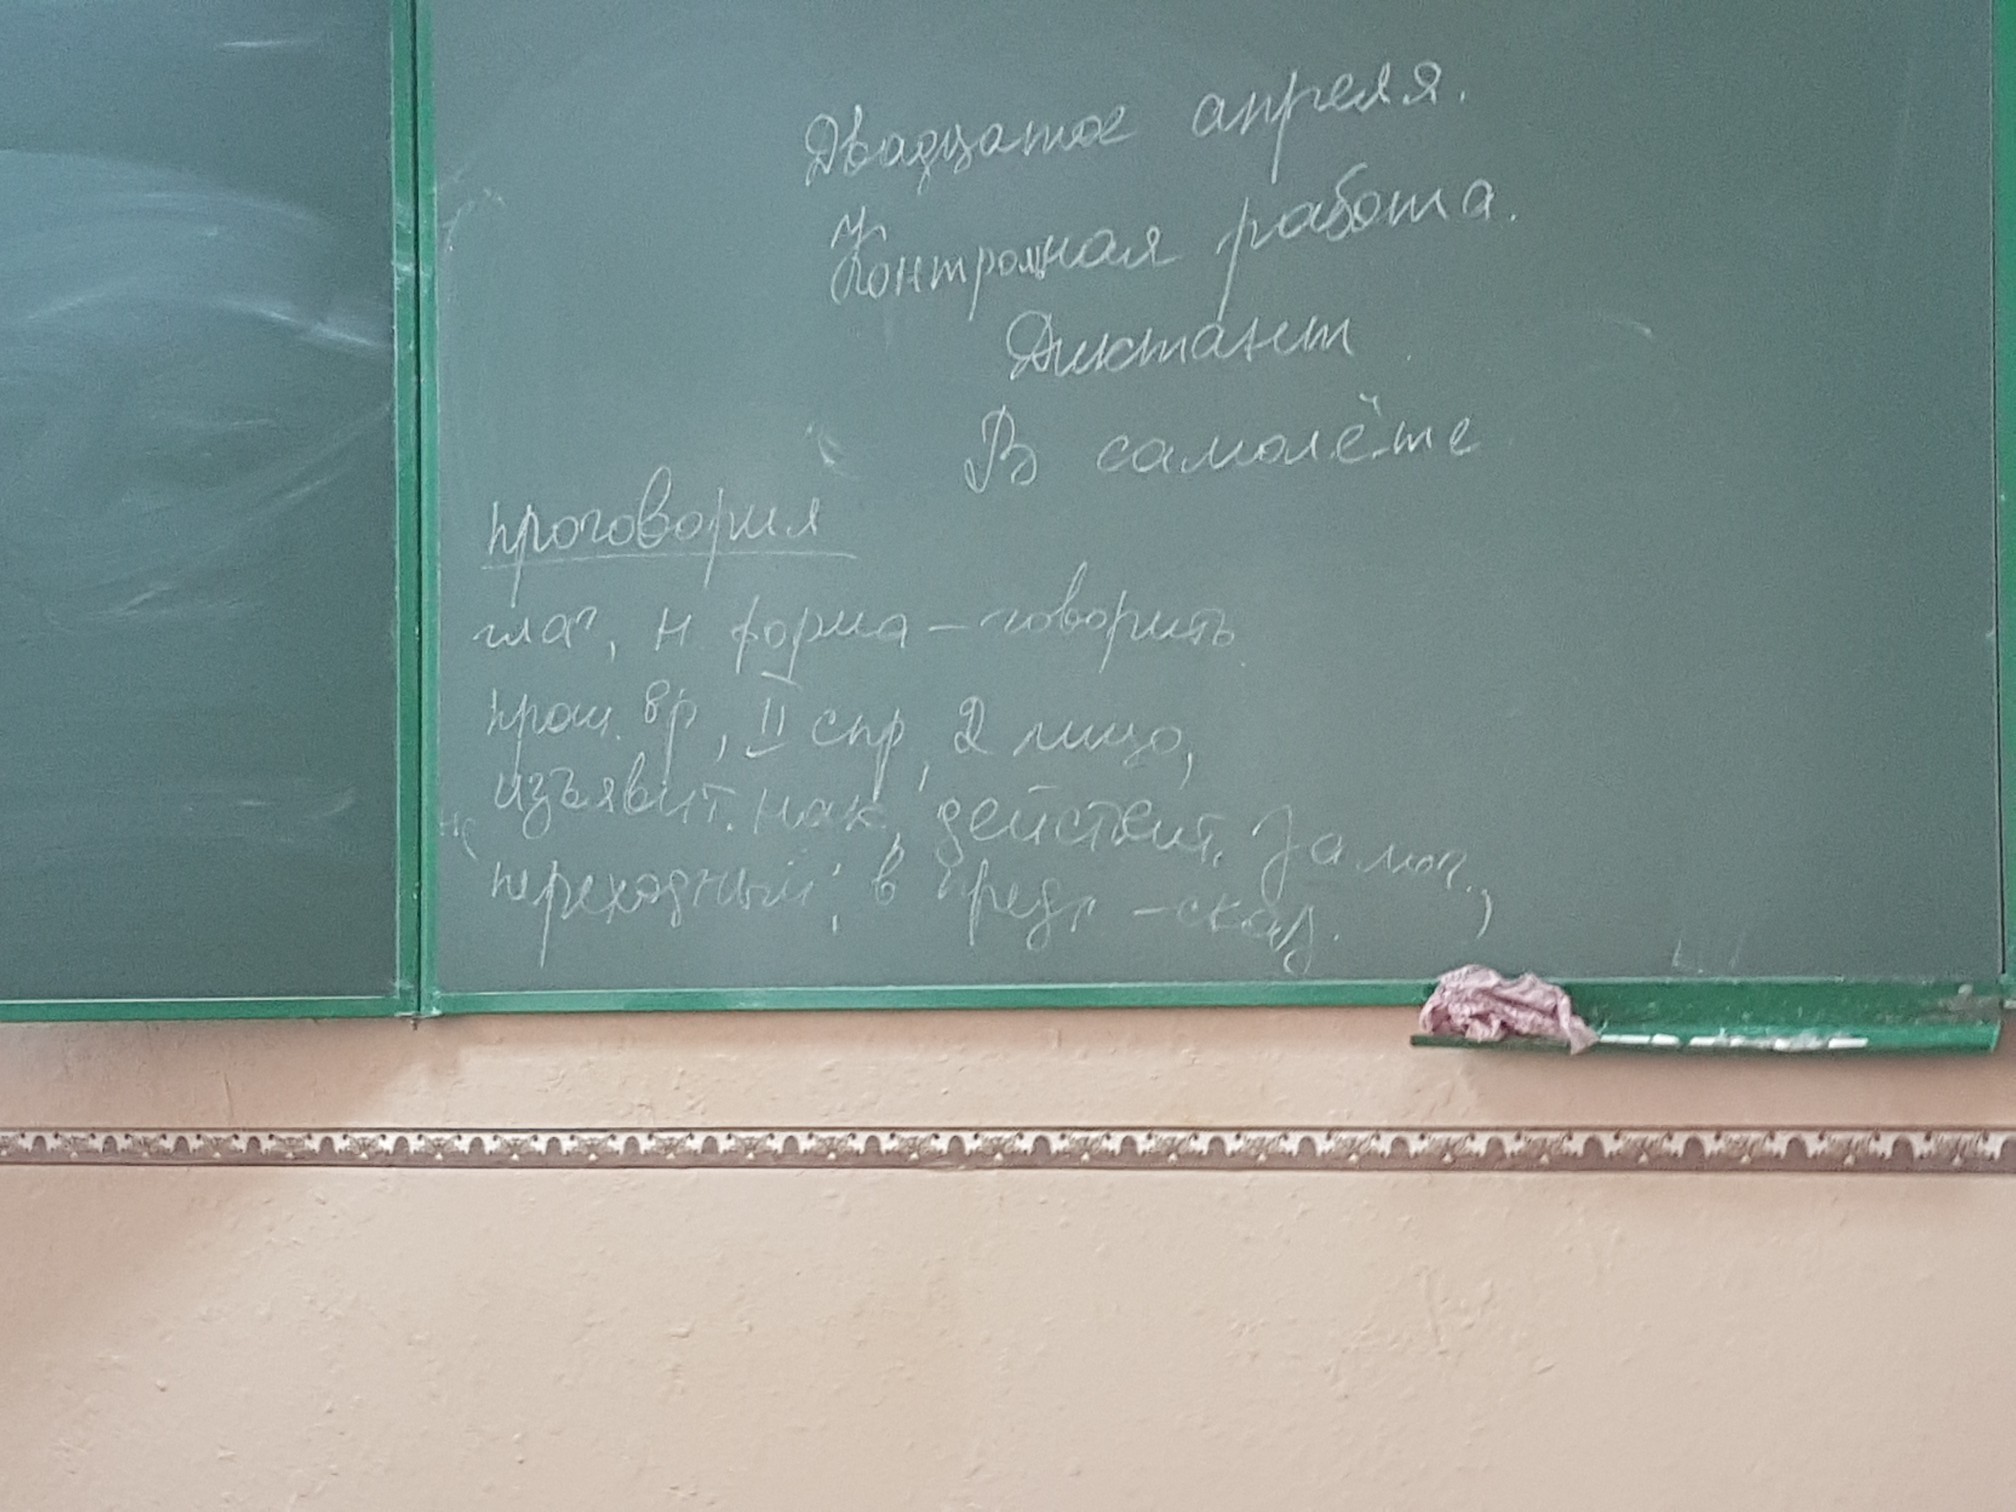 Двадцатое апреля.
Контрольная работа.
Диктант
В самолёте
проговорил
глаг, н. форма – говорить
прош. вр, II спр, 2 лицо,
изъявит. нак, действит. залог.,
переходный, в предл – сказ.